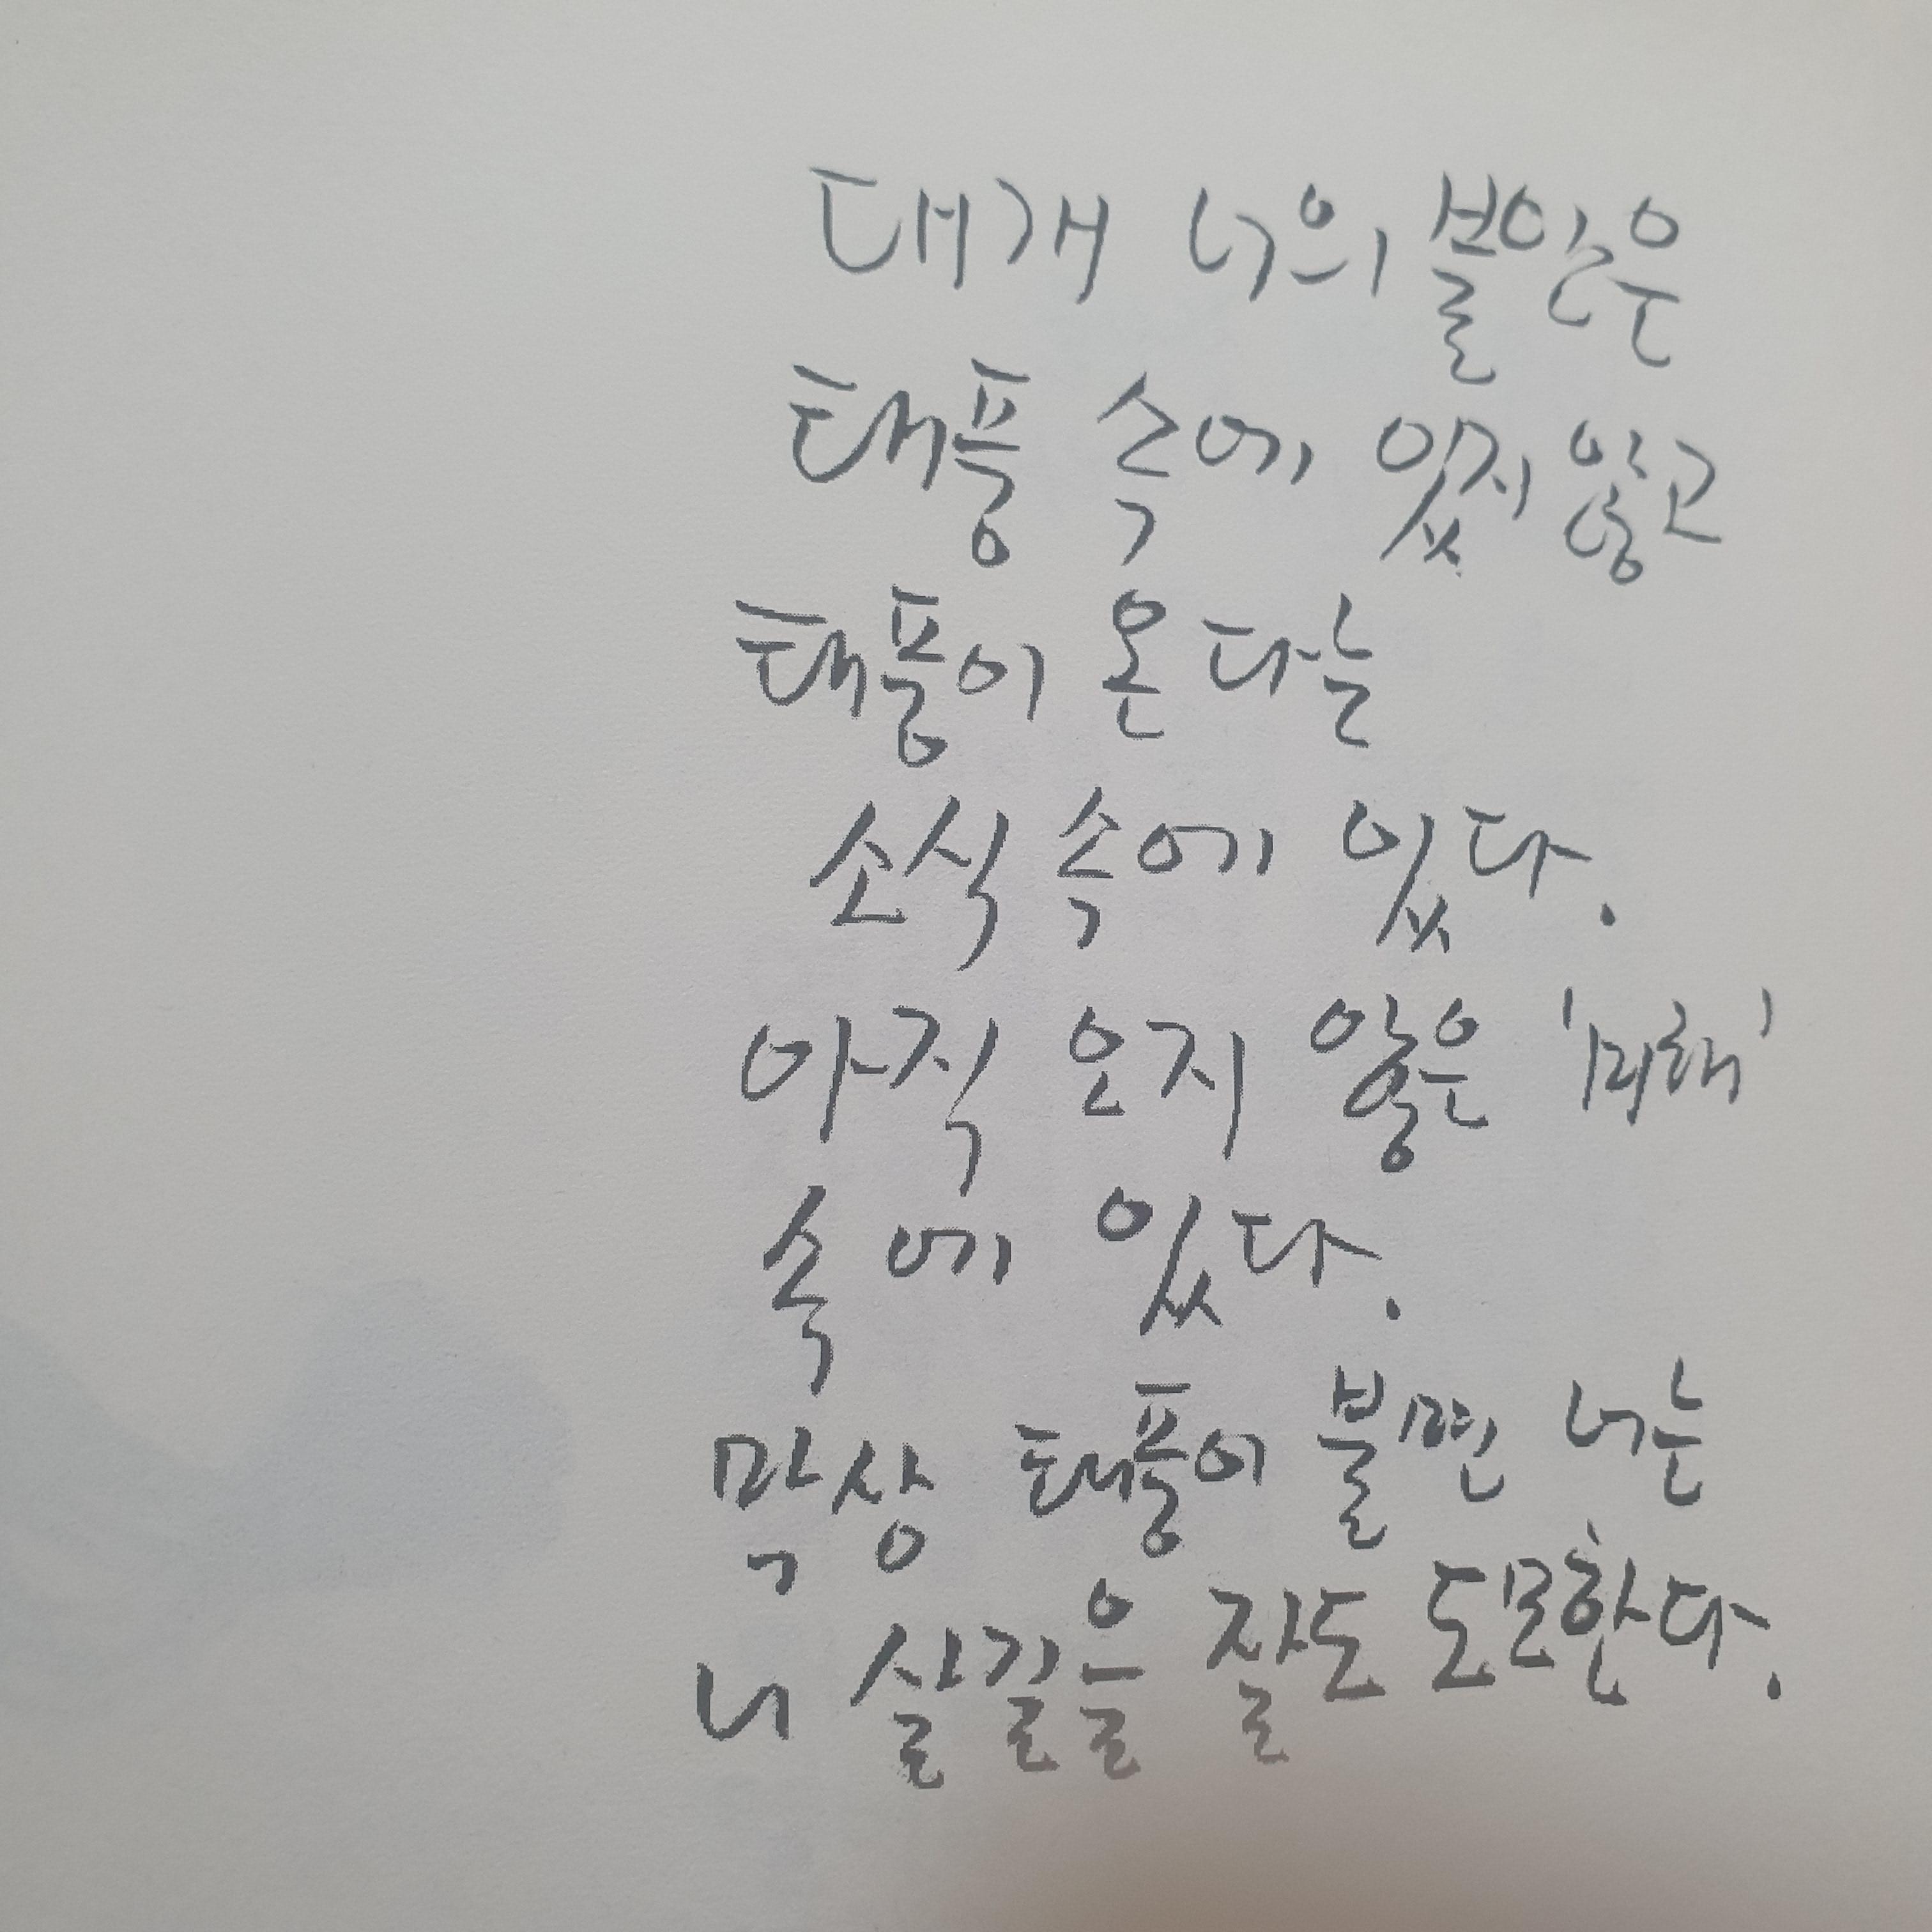 대개 너의 불안은
태풍 속에 있지 않고
태풍이 온다는
소식 속에 있다.
아직 오지 않은 '피해'
속에 있다.
막상 태풍이 불면 너는
니 살길을 잘도 도모한다.